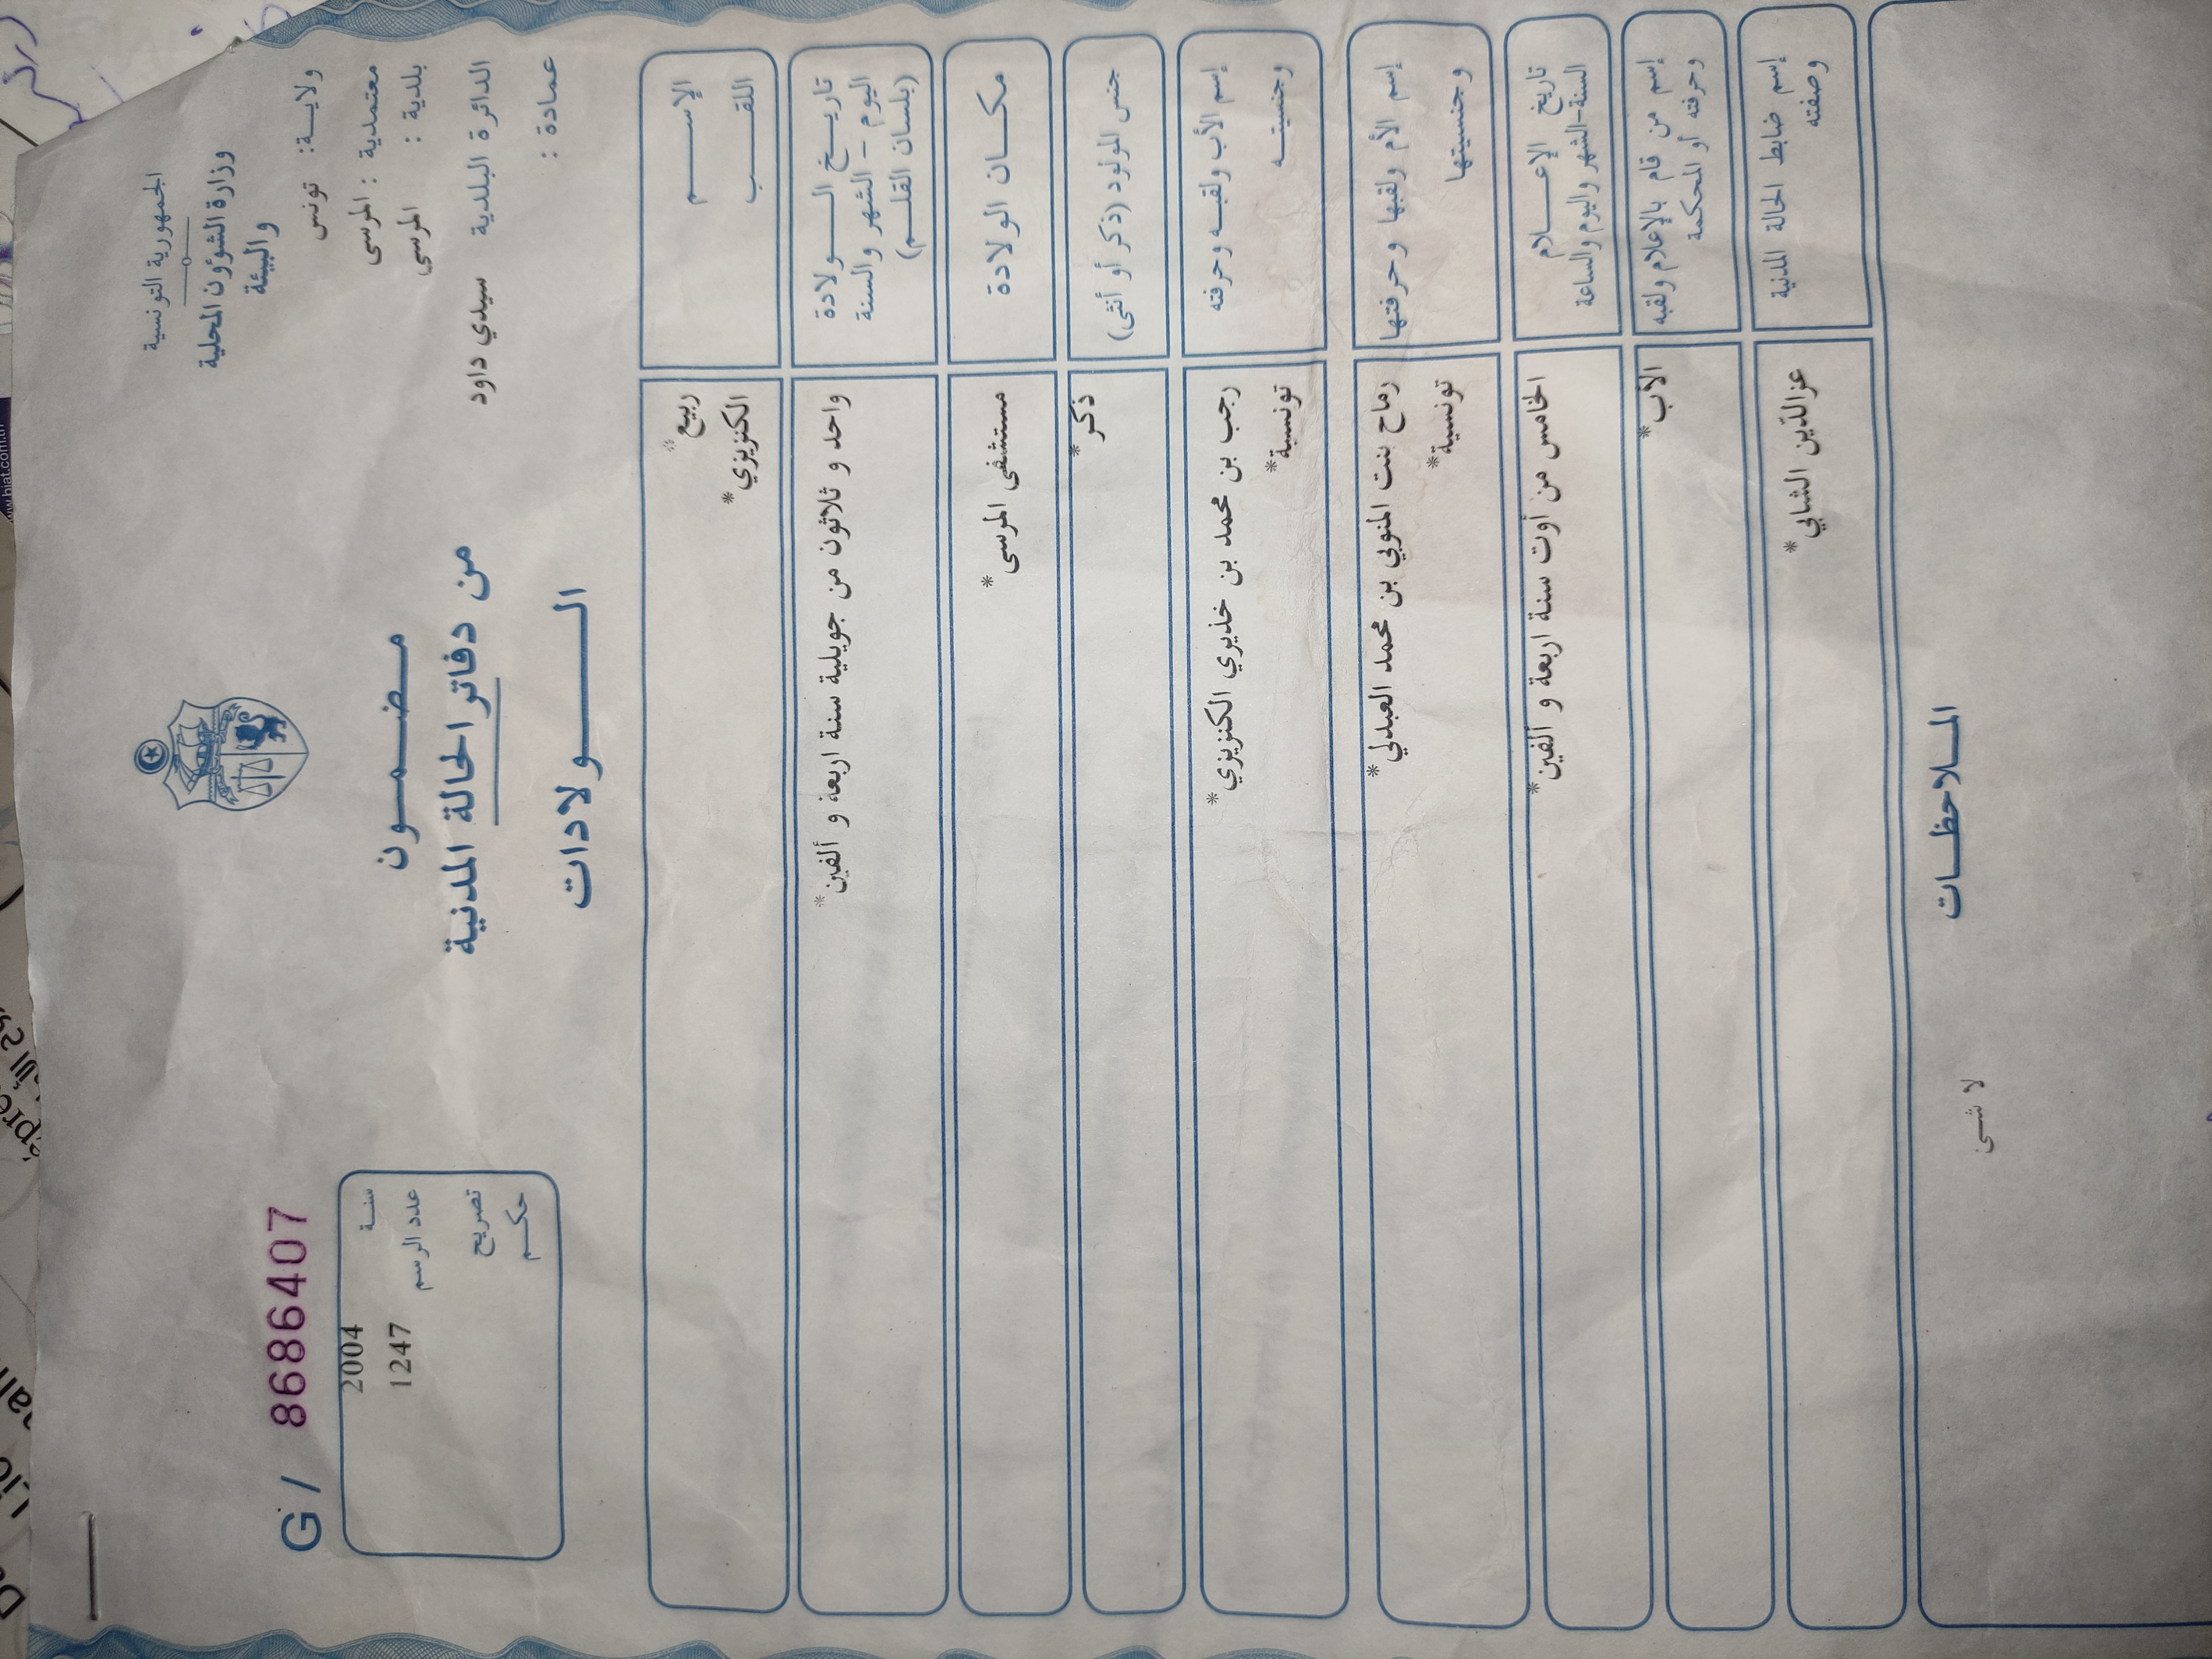 الجمهورية التونسية
وزارة الشؤون المحلية
والبيئة
ولاية: تونس
معتمدية : المرسى
بلدية : المرسى
الدائرة البلدية سيدي داود
عمادة :
مضمون
من دفاتر الحالة المدنية
الولادات
G / 8686407
سنة 2004
عدد الرسم 1247
تصريح
حكم
الإسم
اللقب
ربيع*
الكنزيزي*
تاريخ الولادة
اليوم - الشهر والسنة
(بلسان القلم)
واحد و ثلاثون من جويلية سنة اربعة و ألفين*
مكان الولادة
مستشفى المرسى*
جنس المولود (ذكر أو أنثى)
ذكر*
إسم الأب ولقبه وحرفته
وجنسيته
رجب بن محمد بن خذيري الكنزيزي*
تونسية*
إسم الأم ولقبها وحرفتها
وجنسيتها
رماح بنت المنوبي بن محمد العبدلي*
تونسية*
تاريخ الإعلام
السنة-الشهر واليوم والساعة
الخامس من أوت سنة اربعة و ألفين*
إسم من قام بالإعلام ولقبه
وحرفته أو المحكمة
الأب*
إسم ضابط الحالة المدنية
وصفته
عزالدّين الشابي*
الملاحظات
لا شىء